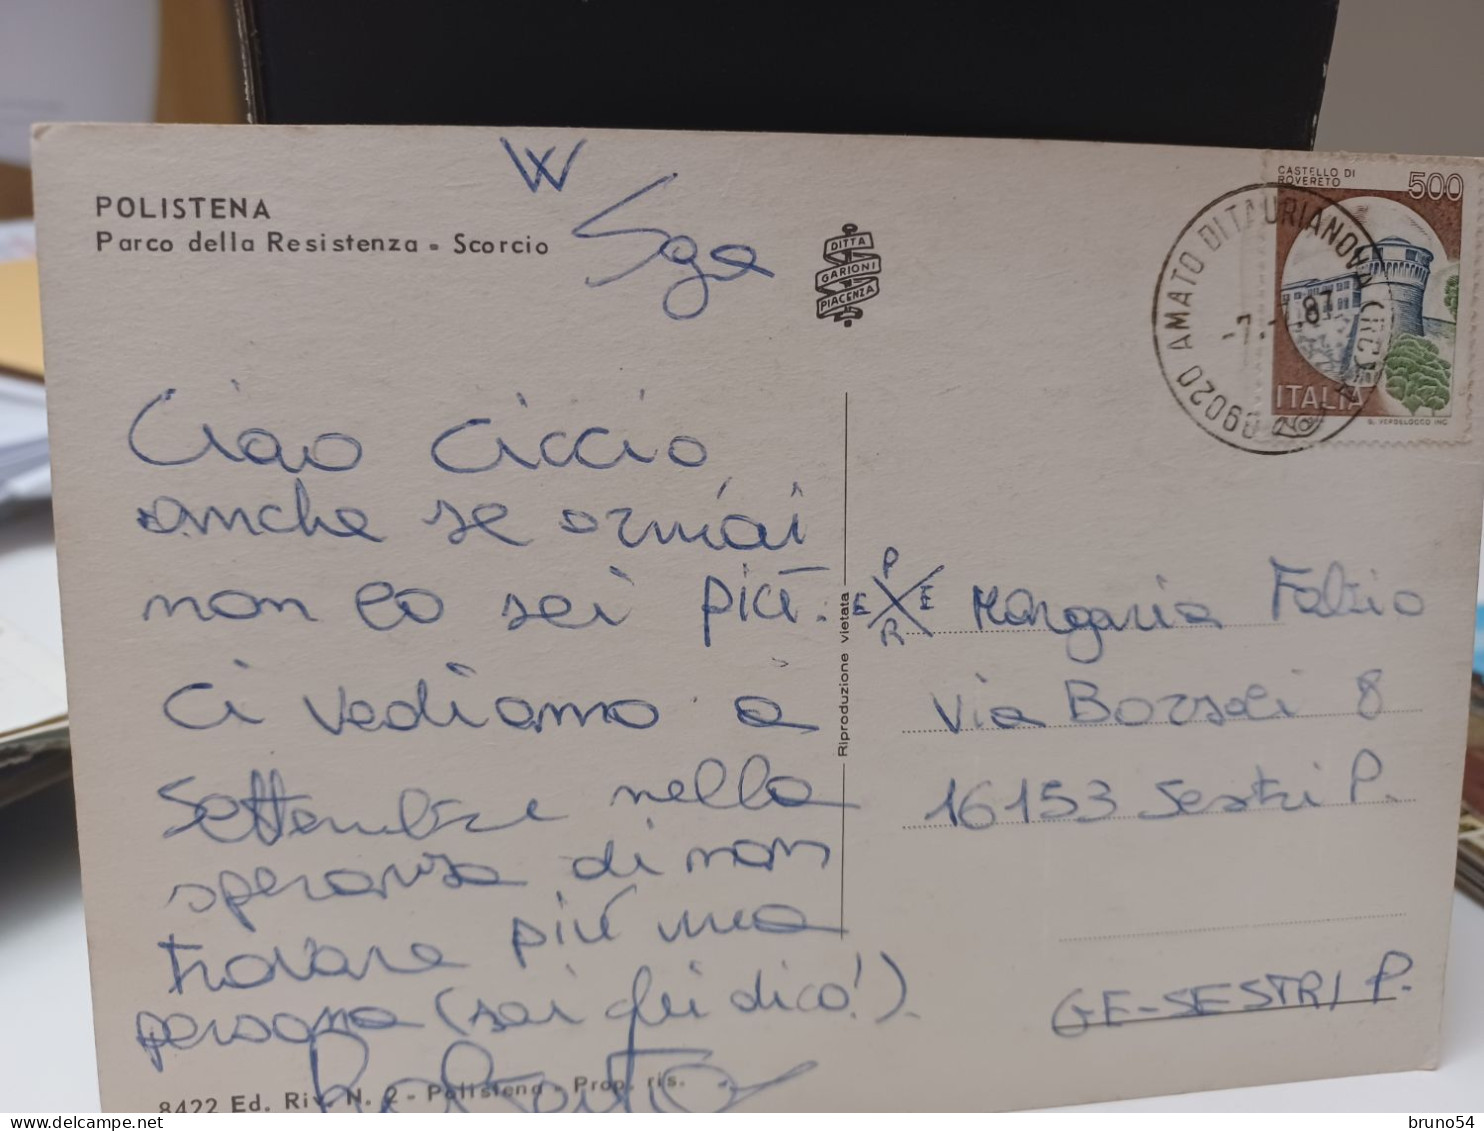 POLISTENA
Parco della Resistenza - Scorcio
W
Sga
DITTA
GARIONI
PIACENZA
CASTELLO DI
ROVERETO
500
ITALIA
G. VERDELOCCO INC.
89020 AMATO DI TAURIANOVA (RC)
-7.-7.87
Ciao Ciccio,
anche se ormai
non lo sei più.
Ci vediamo a
Settembre nella
speranza di non
trovare più una
persona (sai chi dico!).
Roberto
Riproduzione vietata
P
E E
R
Margaria Fabio
Via Borzoli 8
16153 Sestri P.
GE-SESTRI P.
8422 Ed. Riv. N. 2 - Polistena - Prop. ris.
bruno54